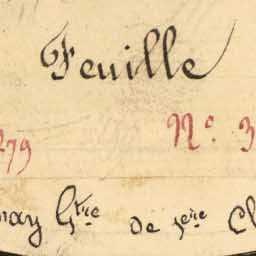 Feuille
279 Nº 3
nay Gtre de 1ère Cl